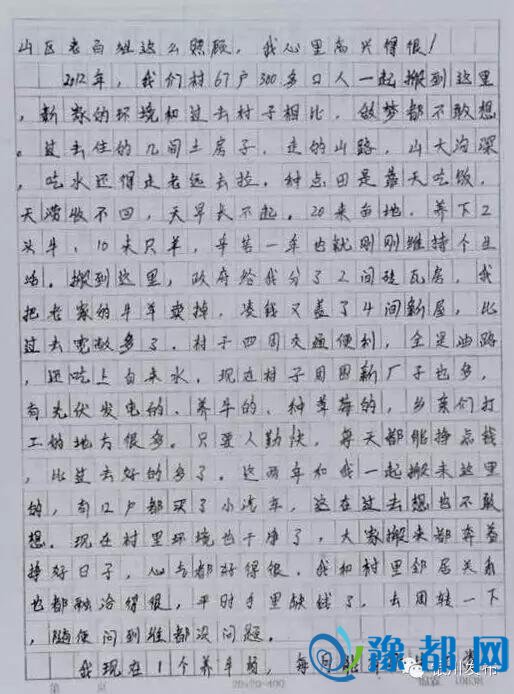 山区老百姓这么照顾，我心里高兴得很！
2012年，我们村67户300多口人一起搬到这里
，新家的环境和过去村子相比，做梦都不敢想
。过去住的几间土房子，走的山路，山大沟深
，吃水还得走老远去拉。种点田是靠天吃饭，
天涝收不回，天旱长不起。20来亩地，养下2
头牛、10来只羊，辛苦一年也就刚刚维持个生
活。搬到这里，政府给我分了2间砖瓦房，我
把老家的牛羊卖掉，凑钱又盖了4间新屋，比
过去宽敞多了。村子四周交通便利，全是油路
，还吃上自来水。现在村子周围新厂子也多，
有光伏发电的、养牛的、种草莓的，乡亲们打
工的地方很多。只要人勤快，每天都能挣点钱
，比过去好的多了。这两年和我一起搬来这里
的，有12户都买了小汽车，这在过去想也不敢
想。现在村里环境也干净了，大家搬来都奔着
挣好日子，心气都好得很。我和村里邻居关系
也都融洽得很，平时手里缺钱了，去周转一下
，随便问到谁都没问题。
我现在1个养牛场，每
豫都网
YUDUW.COM
银川发布
第 页
20×20=400